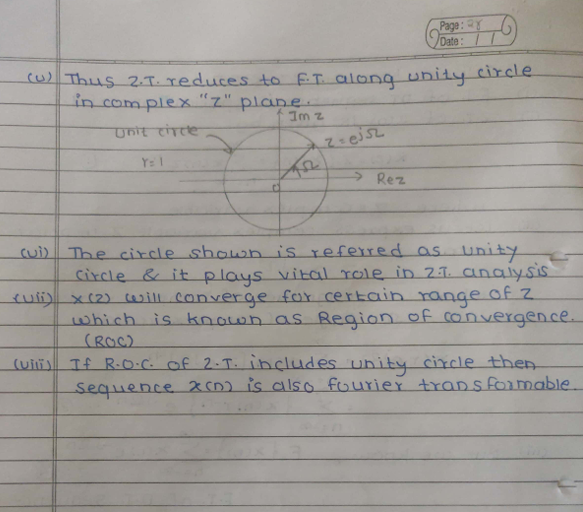 Page: 28
Date: / /
(v) Thus Z.T. reduces to F.T. along unity circle
in complex "Z" plane.
Im z
Unit circle
z = e^jΩ
r=1
Ω
0
Re z
(vi) The circle shown is referred as unity
circle & it plays vital role in Z.T. analysis
(vii) X(Z) will converge for certain range of Z
which is known as Region of convergence.
(ROC)
(viii) If R.O.C. of Z.T. includes unity circle then
sequence x(n) is also fourier transformable.